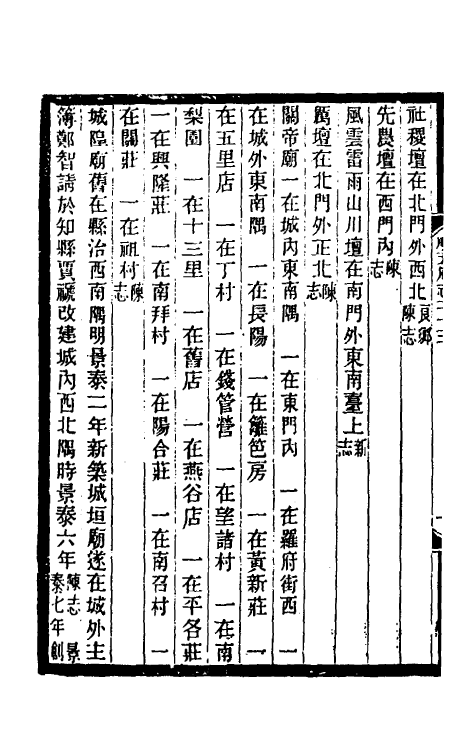 社稷壇在北門外西北良鄉陳志
先農壇在西門內陳志
風雲雷雨山川壇在南門外東南臺上新志
厲壇在北門外正北陳志
關帝廟一在城內東南隅　一在東門內　一在羅府街西　一
在城外東南隅　一在長陽　一在籬笆房　一在黃新莊　一
在五里店　一在丁村　一在錢管營　一在望諸村　一在南
梨園　一在十三里　一在舊店　一在燕谷店　一在平各莊
一在興隆莊　一在南拜村　一在陽合莊　一在南召村　一
在閻莊　一在祖村陳志
城隍廟舊在縣治西南隅明景泰二年新築城垣廟遂在城外主
簿鄭智請於知縣賈禠改建城內西北隅時景泰六年陳志景泰七年創